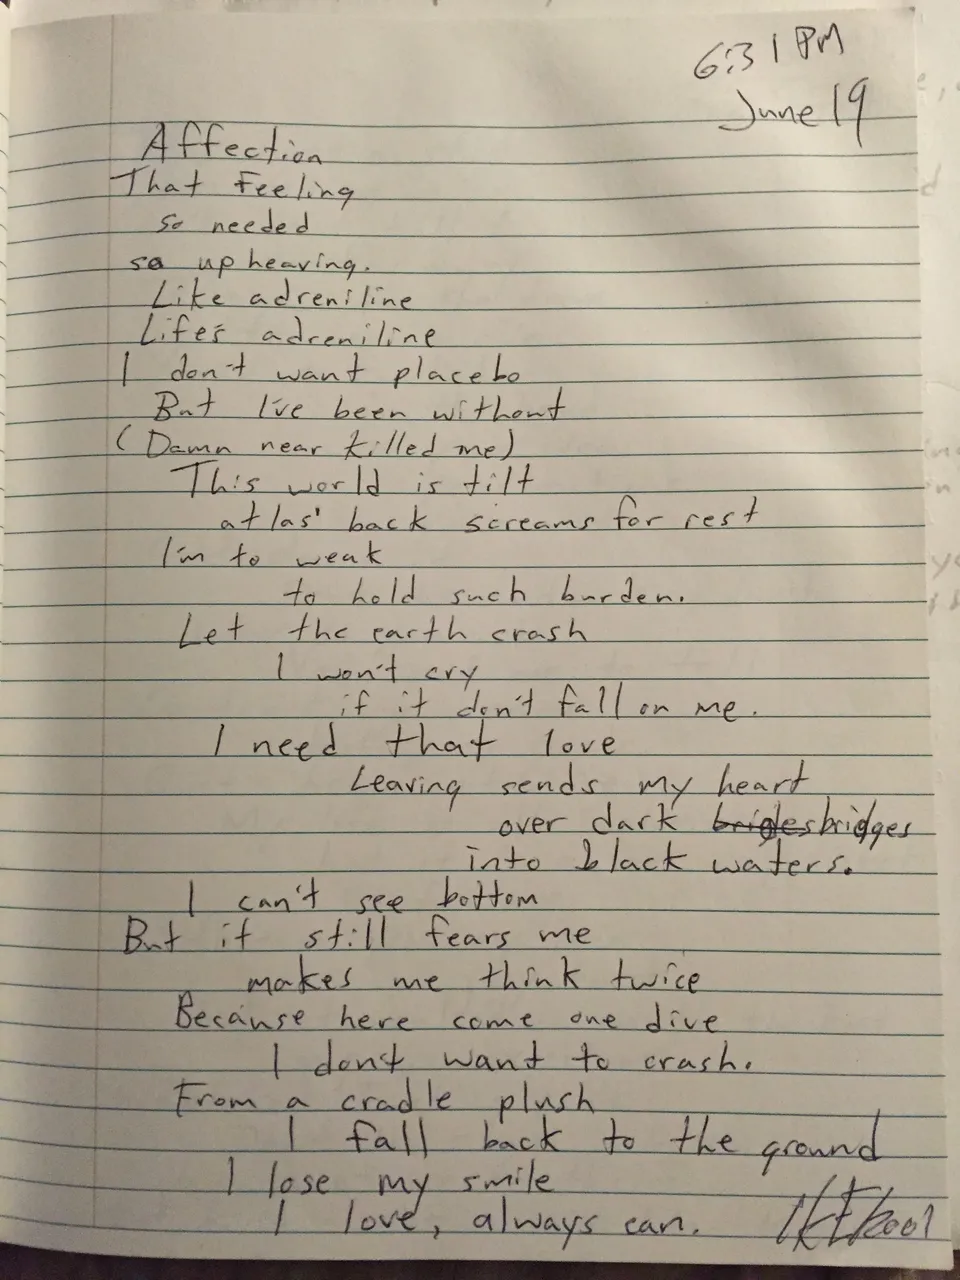 6:31 PM
June 19
Affection
That Feeling
so needed
so up heaving.
Like adreniline
Life's adreniline
I don't want placebo
But I've been without
(Damn near killed me)
This world is tilt
atlas' back screams for rest
I'm to weak
to hold such burden.
Let the earth crash
I won't cry
if it don't fall on me.
I need that love
Leaving sends my heart
over dark brigdes bridges
into black waters.
I can't see bottom
But it still fears me
makes me think twice
Because here come one dive
I don't want to crash.
From a cradle plush
I fall back to the ground
I lose my smile
I love, always can.